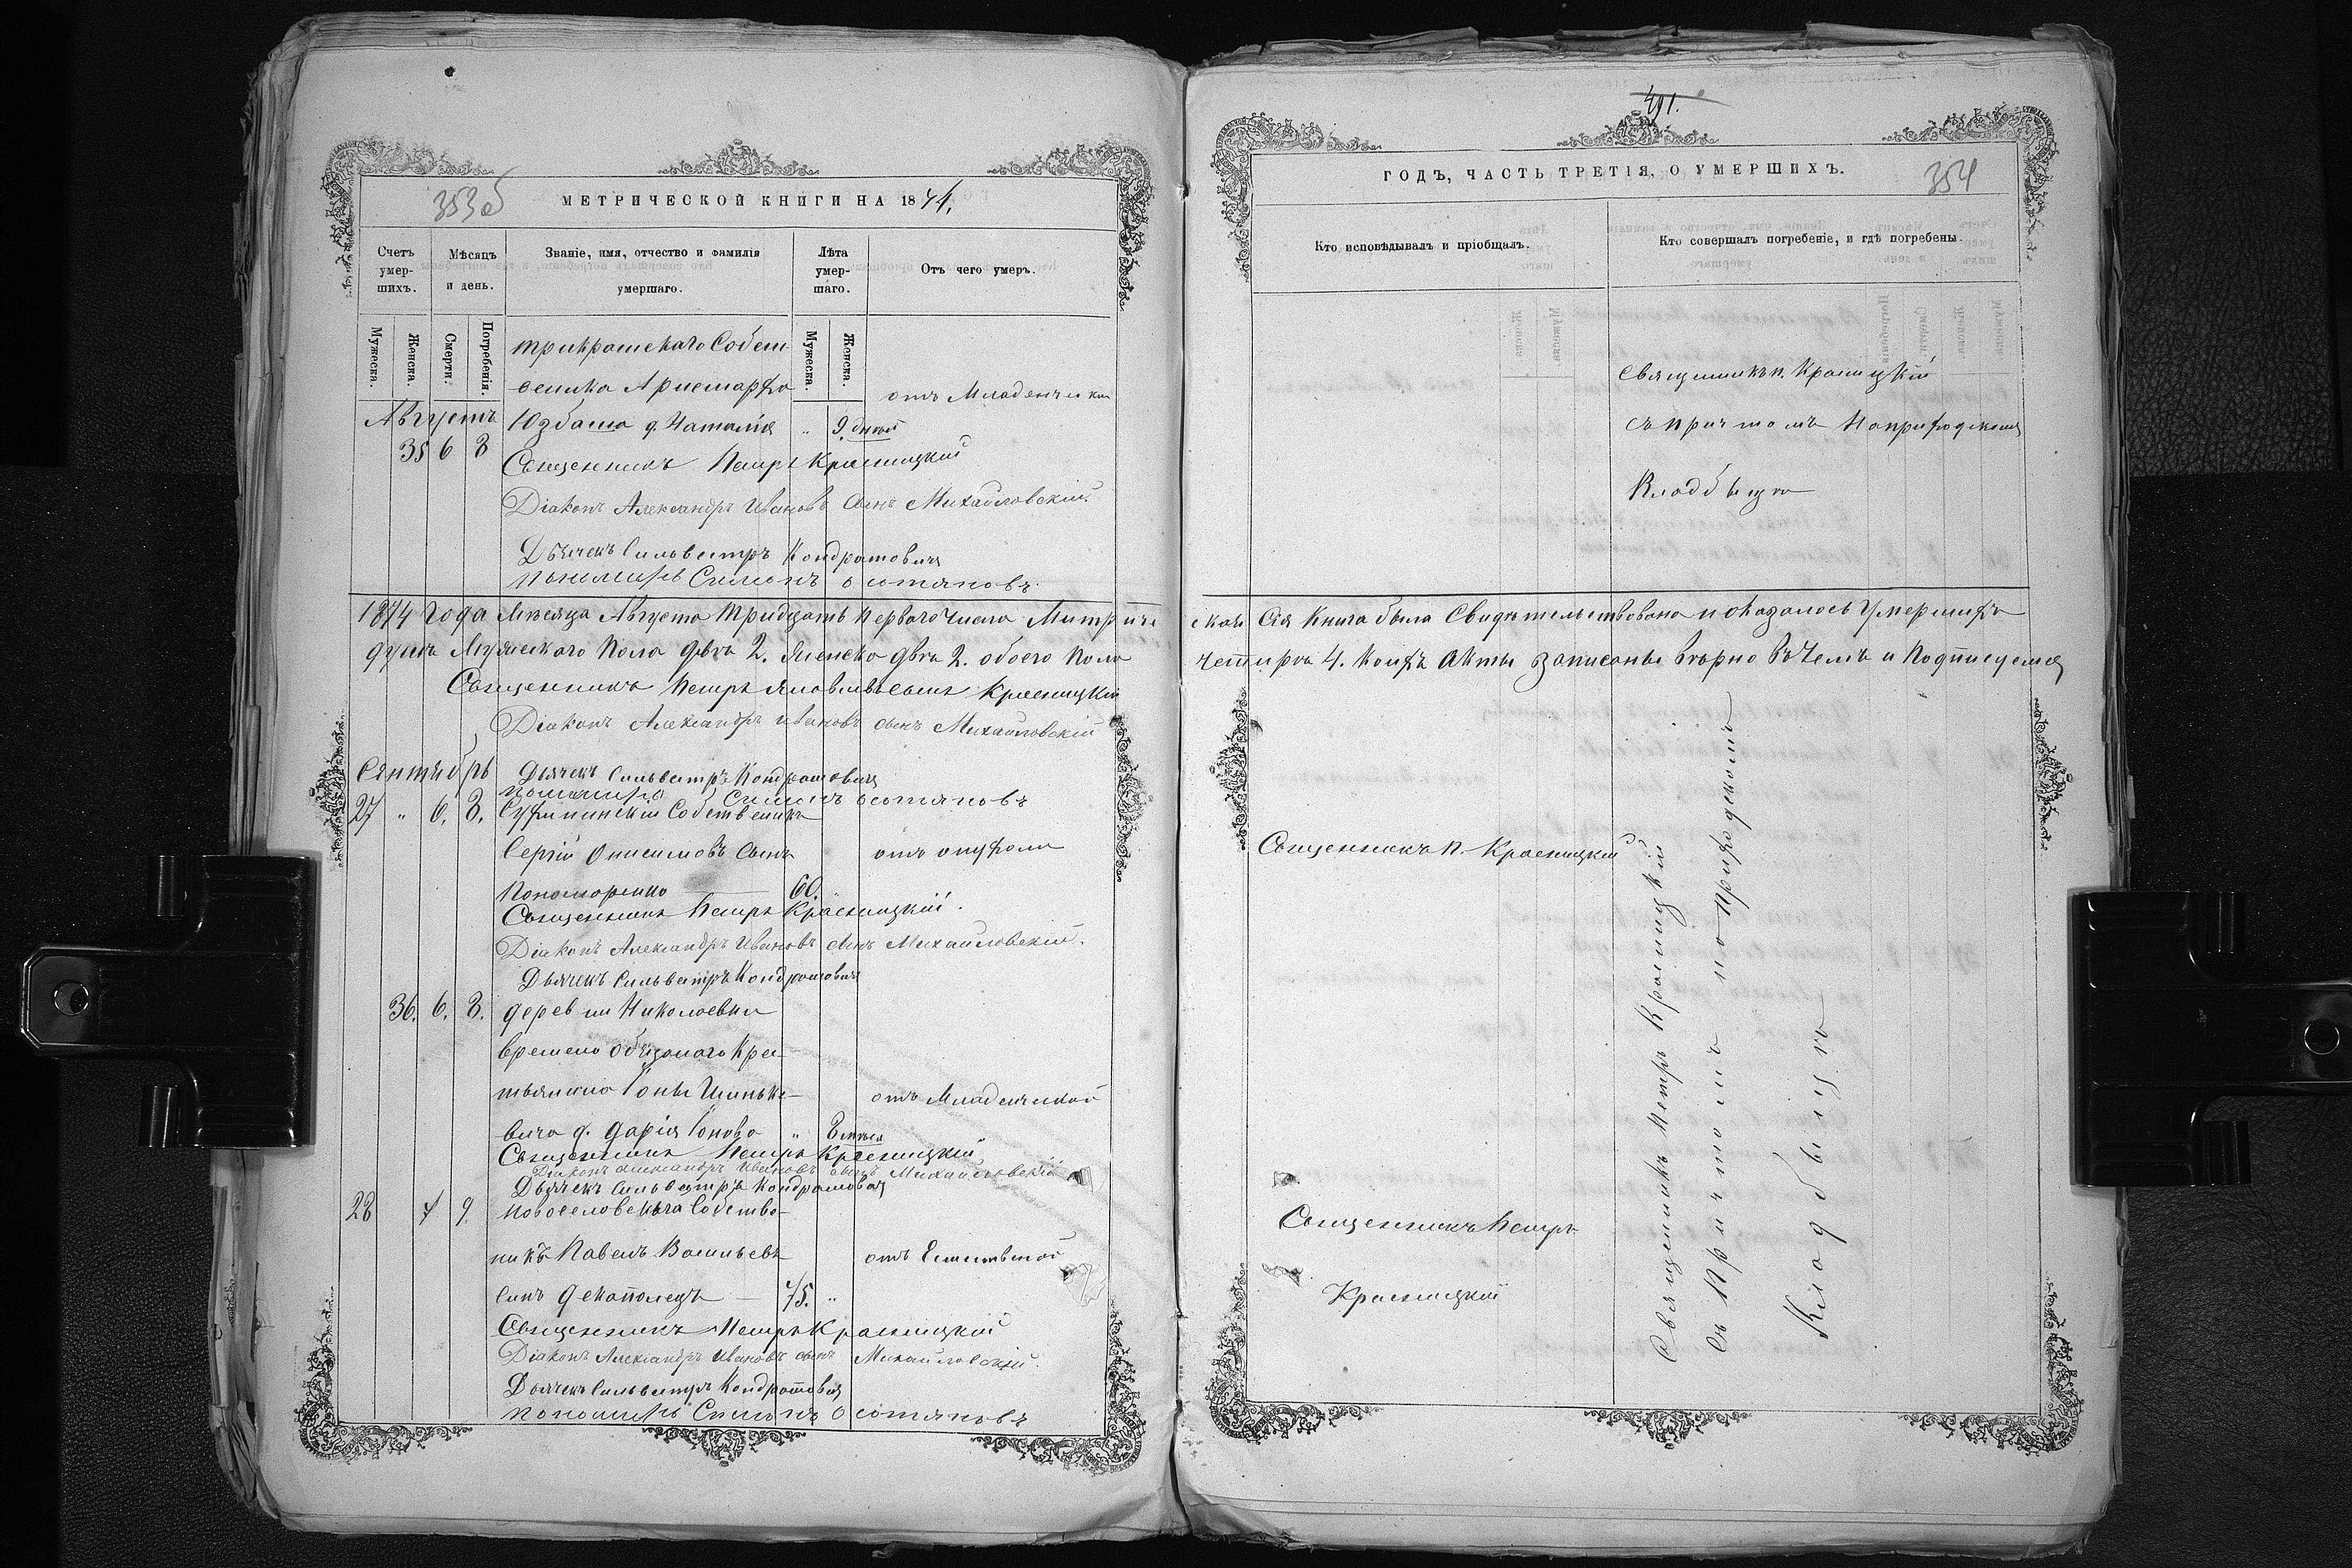 353об
МЕТРИЧЕСКОЙ КНИГИ НА 1874.
Счетъ умер-шихъ.
Мѣсяцъ и день.
Званіе, имя, отчество и фамилія умершаго.
Лѣта умер-шаго.
Отъ чего умеръ.
Мужеска.
Женска.
Смерти.
Погребенія.
Мужеска.
Женска.
Собст-
веника Аристарха
отъ Младенческа
Августъ
Юзбаша д. Наталія " 9. дней
35 6 8
Священникъ Петръ Красницкій
Діаконъ Александръ Ивановъ сынъ Михайловскій
Дьячекъ Сильвестръ Кондратовичъ
пономарь Симонъ
1874 года Месяца Августа тридцать перваго числа Митриче
душъ Мужескаго пола два 2. Женско два 2. обоего пола
Священникъ Петръ Яковлевъ сынъ Красницкій
Діаконъ Александръ Ивановъ сынъ Михайловскій
Сянтябрь
Дьячекъ Сильвестръ Кондратовичъ
пономарь Симонъ
27 " 6. 8. Собственикъ
Сергій Онисимовъ сынъ
отъ опухоли
Пономаренко 60.
Священникъ Петръ Красницкій.
Діаконъ Александръ Ивановъ сынъ Михайловскій.
Дьячекъ Сильвестръ Кондратовичъ
36. 6. 8. деревни Николаевки
времено обязанаго Крес-
тьянина Іоны
отъ Младенческой
вича д. Дарія Іонова "
Священникъ Петръ Красницкій
Діаконъ Александръ Ивановъ сынъ Михайловскій
Дьячекъ Сильвестръ Кондратовичъ
28 7 9. Собстве-
никъ Павелъ Васильевъ
отъ Естествной
синъ 75. "
Священникъ Петръ Красницкій
Діаконъ Александръ Ивановъ сынъ Михайловскій.
Дьячекъ Сильвестръ Кондратовичъ
пономарь Симонъ
491.
ГОДЪ, ЧАСТЬ ТРЕТІЯ, О УМЕРШИХЪ.
354
Кто исповѣдывалъ и пріобщалъ.
Кто совершалъ погребеніе, и гдѣ погребены.
Священикъ П. Красницкій
съ причтомъ на приходскомъ
Кладбищѣ
ская сія книга была Свидѣтельствована и оказалось Умершихъ
четири 4. коихъ Акты записаны вѣрно въ чемъ и подписуемся
Священникъ П. Красницкій
Священникъ Петръ
Красницкій
Священикъ Петръ Красницкій
съ Причтомъ на приходскомъ
Кладбищѣ